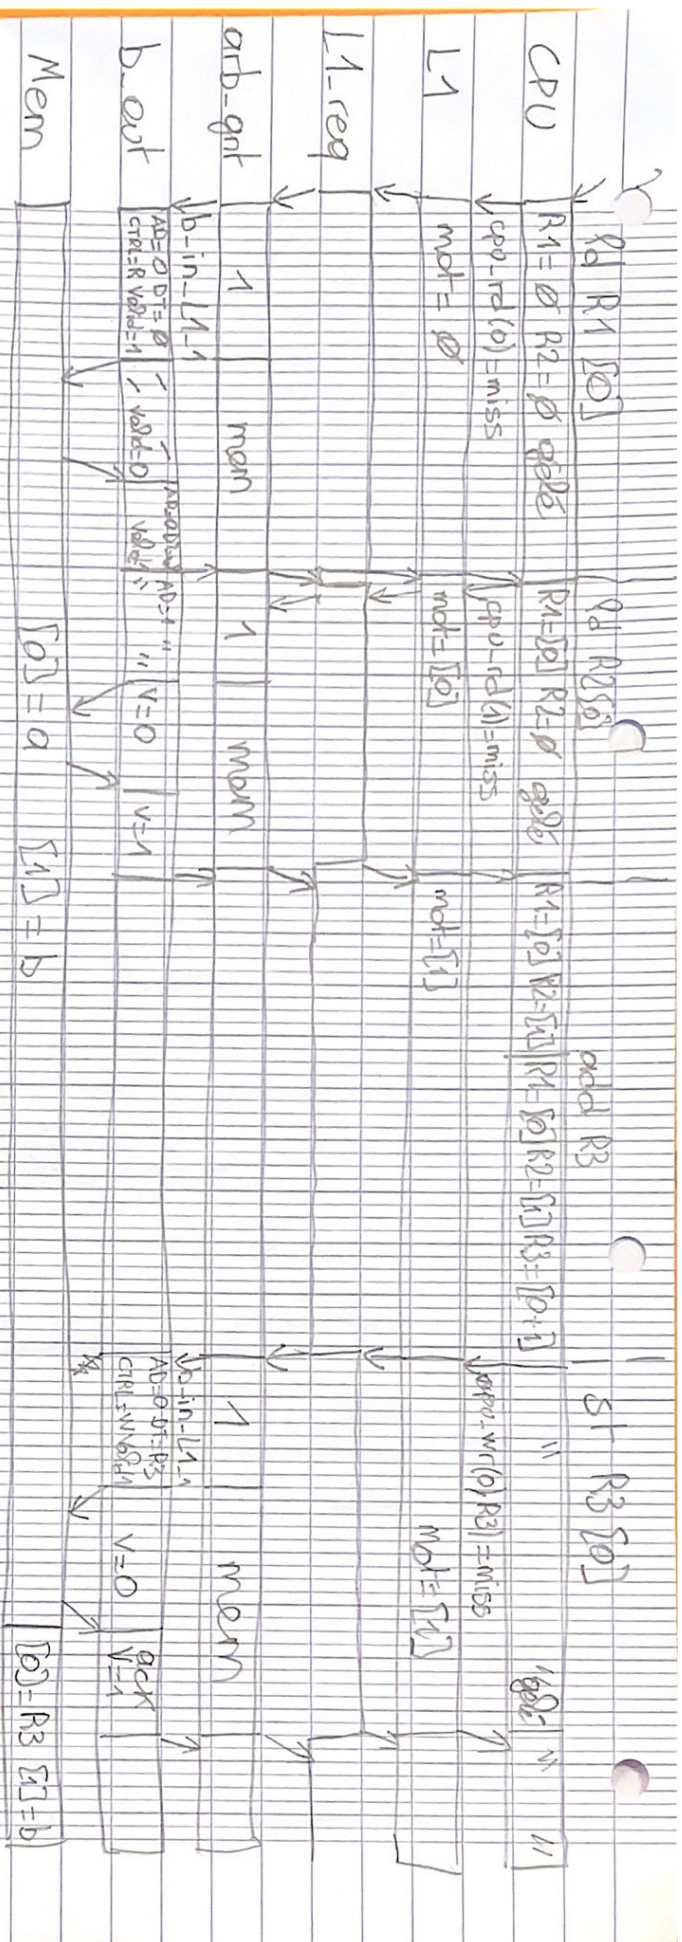 ld R1 [0] ld R2 [0] add R3 st R3 [0]
CPU R1=Ø R2=Ø gelé R1=[0] R2=Ø gelé R1=[0] R2=[1] R1=[0] R2=[1] R3=[0+1] " " gelé " "
cpu_rd(0)=miss cpu_rd(1)=miss cpu_wr(0,R3)=miss
L1 mot=Ø mot=[0] mot=[1] mot=[1]
L1_req
arb_gnt 1 mem 1 mem 1 mem
b_in_L1_1 b_in_L1_1
b_out AD=0 DT=Ø valid=0 AD=1 " " V=0 V=1 AD=0 DT=R3 V=0 ack
CTRL=R Valid=1 CTRL=W V=1
Mem [0]=a [1]=b [0]=R3 [1]=b